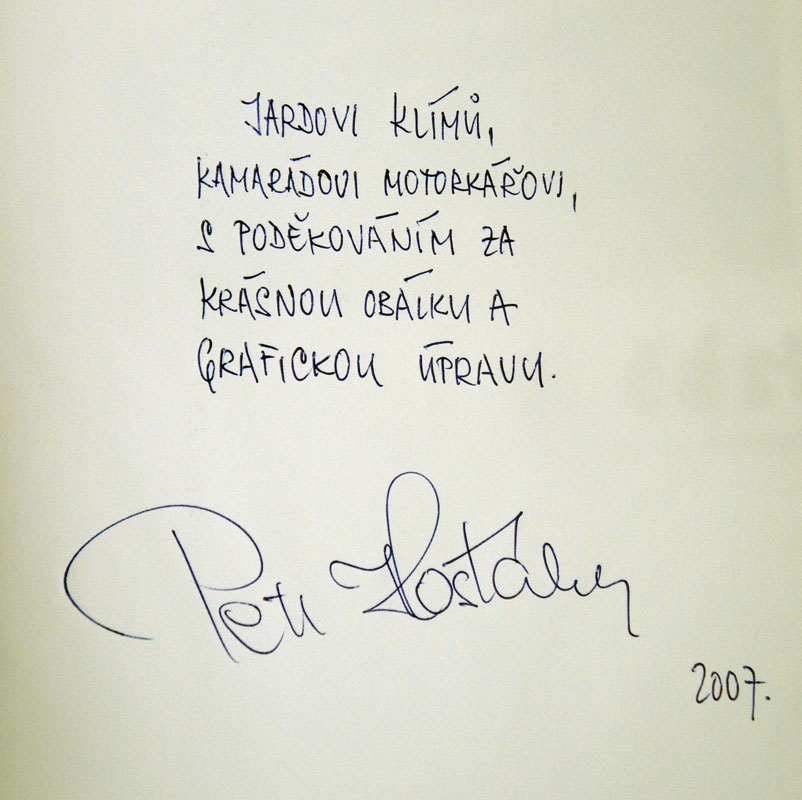 JARDOVI KLÍMŮ,
KAMARÁDOVI MOTORKÁŘOVI,
S PODĚKOVÁNÍM ZA
KRÁSNOU OBÁLKU A
GRAFICKOU ÚPRAVU.
Petr Hošťálek
2007.